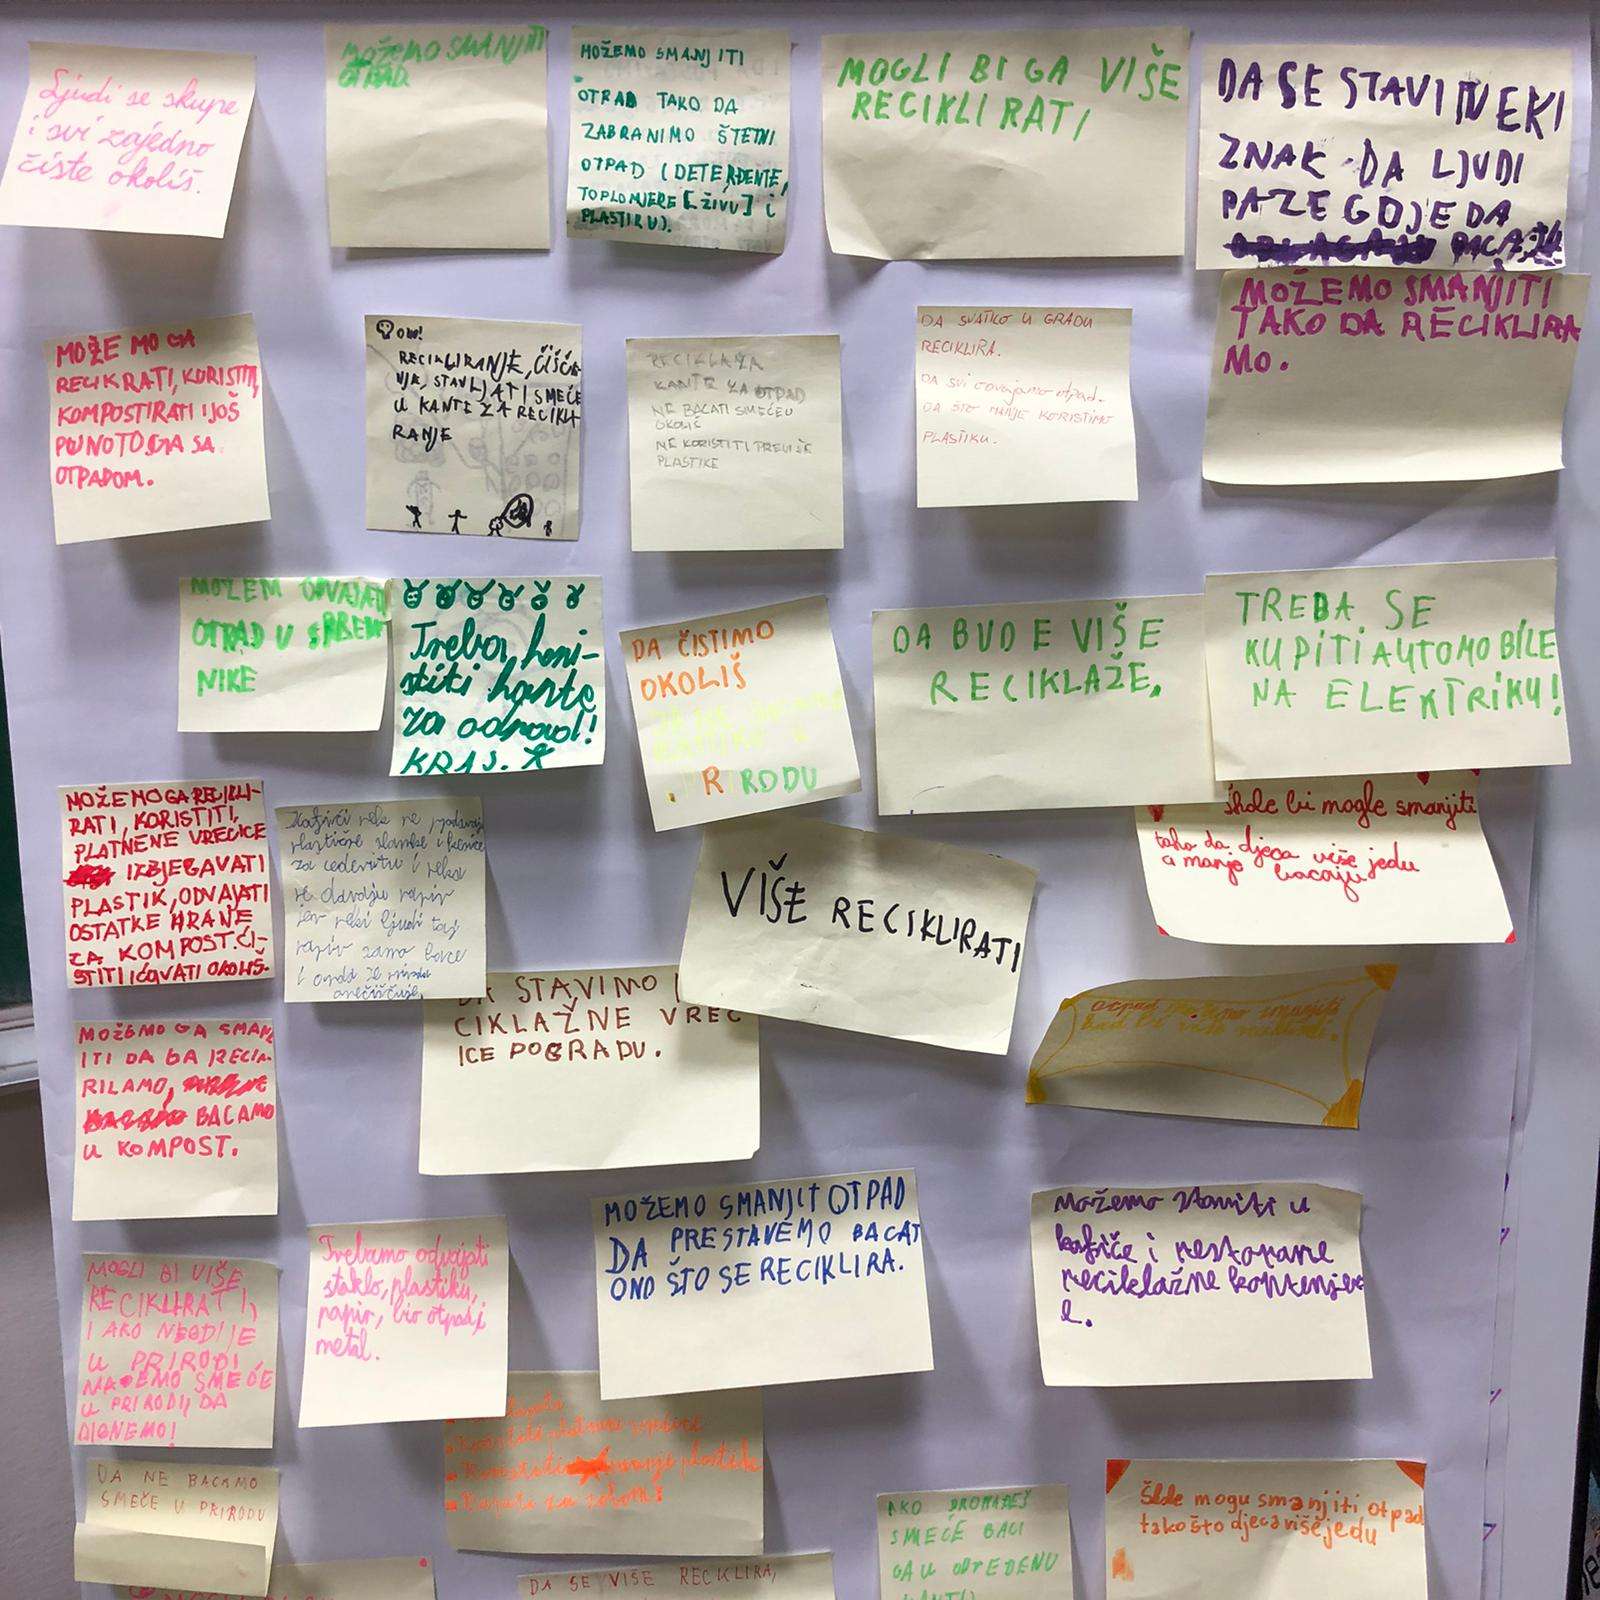 Ljudi se skupe
i svi zajedno
čiste okoliš.
MOŽEMO SMANJITI
OTPAD
MOŽEMO SMANJITI
OTPAD TAKO DA
ZABRANIMO ŠTETNI
OTPAD (DETERĐENTE,
TOPLOMJERE [ŽIVU] i
PLASTIKU).
MOGLI BI GA VIŠE
RECIKLIRATI
DA SE STAVI NEKI
ZNAK DA LJUDI
PAZE GDJE DA
MOŽEMO SMANJITI
TAKO DA RECIKLIRA
MO.
MOŽEMO GA
RECIKRATI, KORISTITI,
KOMPOSTIRATI I JOŠ
PUNO TOGA SA
OTPADOM.
RECIKLIRANJE, ČIŠĆE-
NJE, STAVLJATI SMEĆE
U KANTE ZA RECIKLI
RANJE
RECIKLAŽA
KANTE ZA OTPAD
NE BACATI SMEĆE U
OKOLIŠ
NE KORISTITI PREVIŠE
PLASTIKE
DA SVATKO U GRADU
RECIKLIRA.
DA SVI odvajamo otpad.
DA ŠTO MANJE KORISTIMO
PLASTIKU.
MOŽEM ODVAJATI
OTPAD U SPREM
NIKE
Treba kori-
stiti kante
za odpad!
KRAJ.
DA ČISTIMO
OKOLIŠ
DA BUDE VIŠE
RECIKLAŽE.
TREBA SE
KUPITI AUTOMOBILE
NA ELEKTRIKU!
MOŽEMO GA RECIKLI-
RATI, KORISTITI,
PLATNENE VREĆICE
IZBJEGAVATI
PLASTIK, ODVAJATI
OSTATKE HRANE
ZA KOMPOST. ČI-
STITI I ČUVATI OKOLIŠ.
Kafići neka ne prodavaju
plastične slamke i
za cedevitu i neka
ne davaju papir
jer neki ljudi taj
papir samo bace
i onda se priroda
onečišćuje.
VIŠE RECIKLIRATI
škole bi mogle smanjiti
tako da djeca više jedu
a manje bacaju
DA STAVIMO
CIKLAŽNE VREĆ
ICE PO GRADU.
MOŽEMO GA SMANJ
ITI DA GA RECIK
RILAMO,
BACAMO
U KOMPOST.
otpad možemo smanjiti
MOŽEMO SMANJIT OTPAD
DA PRESTAVEMO BACAT
ONO ŠTO SE RECIKLIRA.
Možemo staviti u
kafiće i restorane
reciklažne kontenjer
e.
MOGLI BI VIŠE
RECIKLIRATI,
I AKO NEGDIJE
U PRIRODI
NAĐEMO SMEĆE
U PRIRODI, DA
DIGNEMO!
Trebamo odvajati
staklo, plastiku,
papir, bio otpad i
metal.
manje plastike
DA NE BACAMO
SMEČE U PRIRODU
AKO PRONAĐEŠ
SMEĆE BACI
GA U ODREĐENU
KANTU
Škole mogu smanjiti otpad
tako što djeca više jedu
DA SE VIŠE RECIKLIRA,